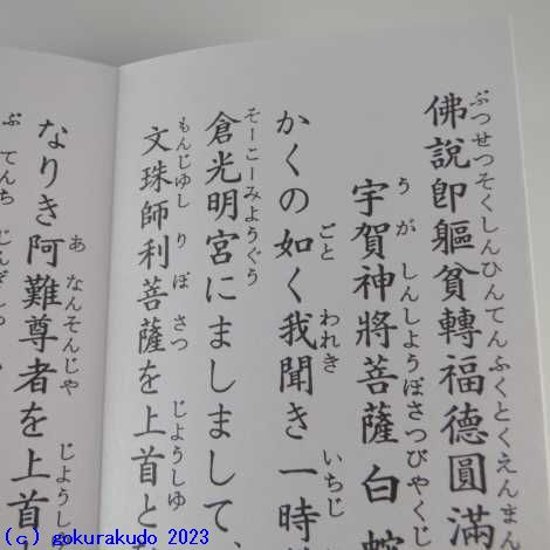 佛說卽軀貧轉福德圓滿
ぶつせつそくしんひんてんふくとくえんまん
宇賀神將菩薩白蛇
うがしんしようぼさつびやくじ
かくの如く我聞き一時
ごとわれきいちじ
倉光明宮にましまして、
そーこーみようぐう
文珠師利菩薩を上首と
もんじゆしりぼさつじようしゆ
なりき阿難尊者を上首
あなんそんじやじようし
ぶてんち
(c) gokurakudo 2023